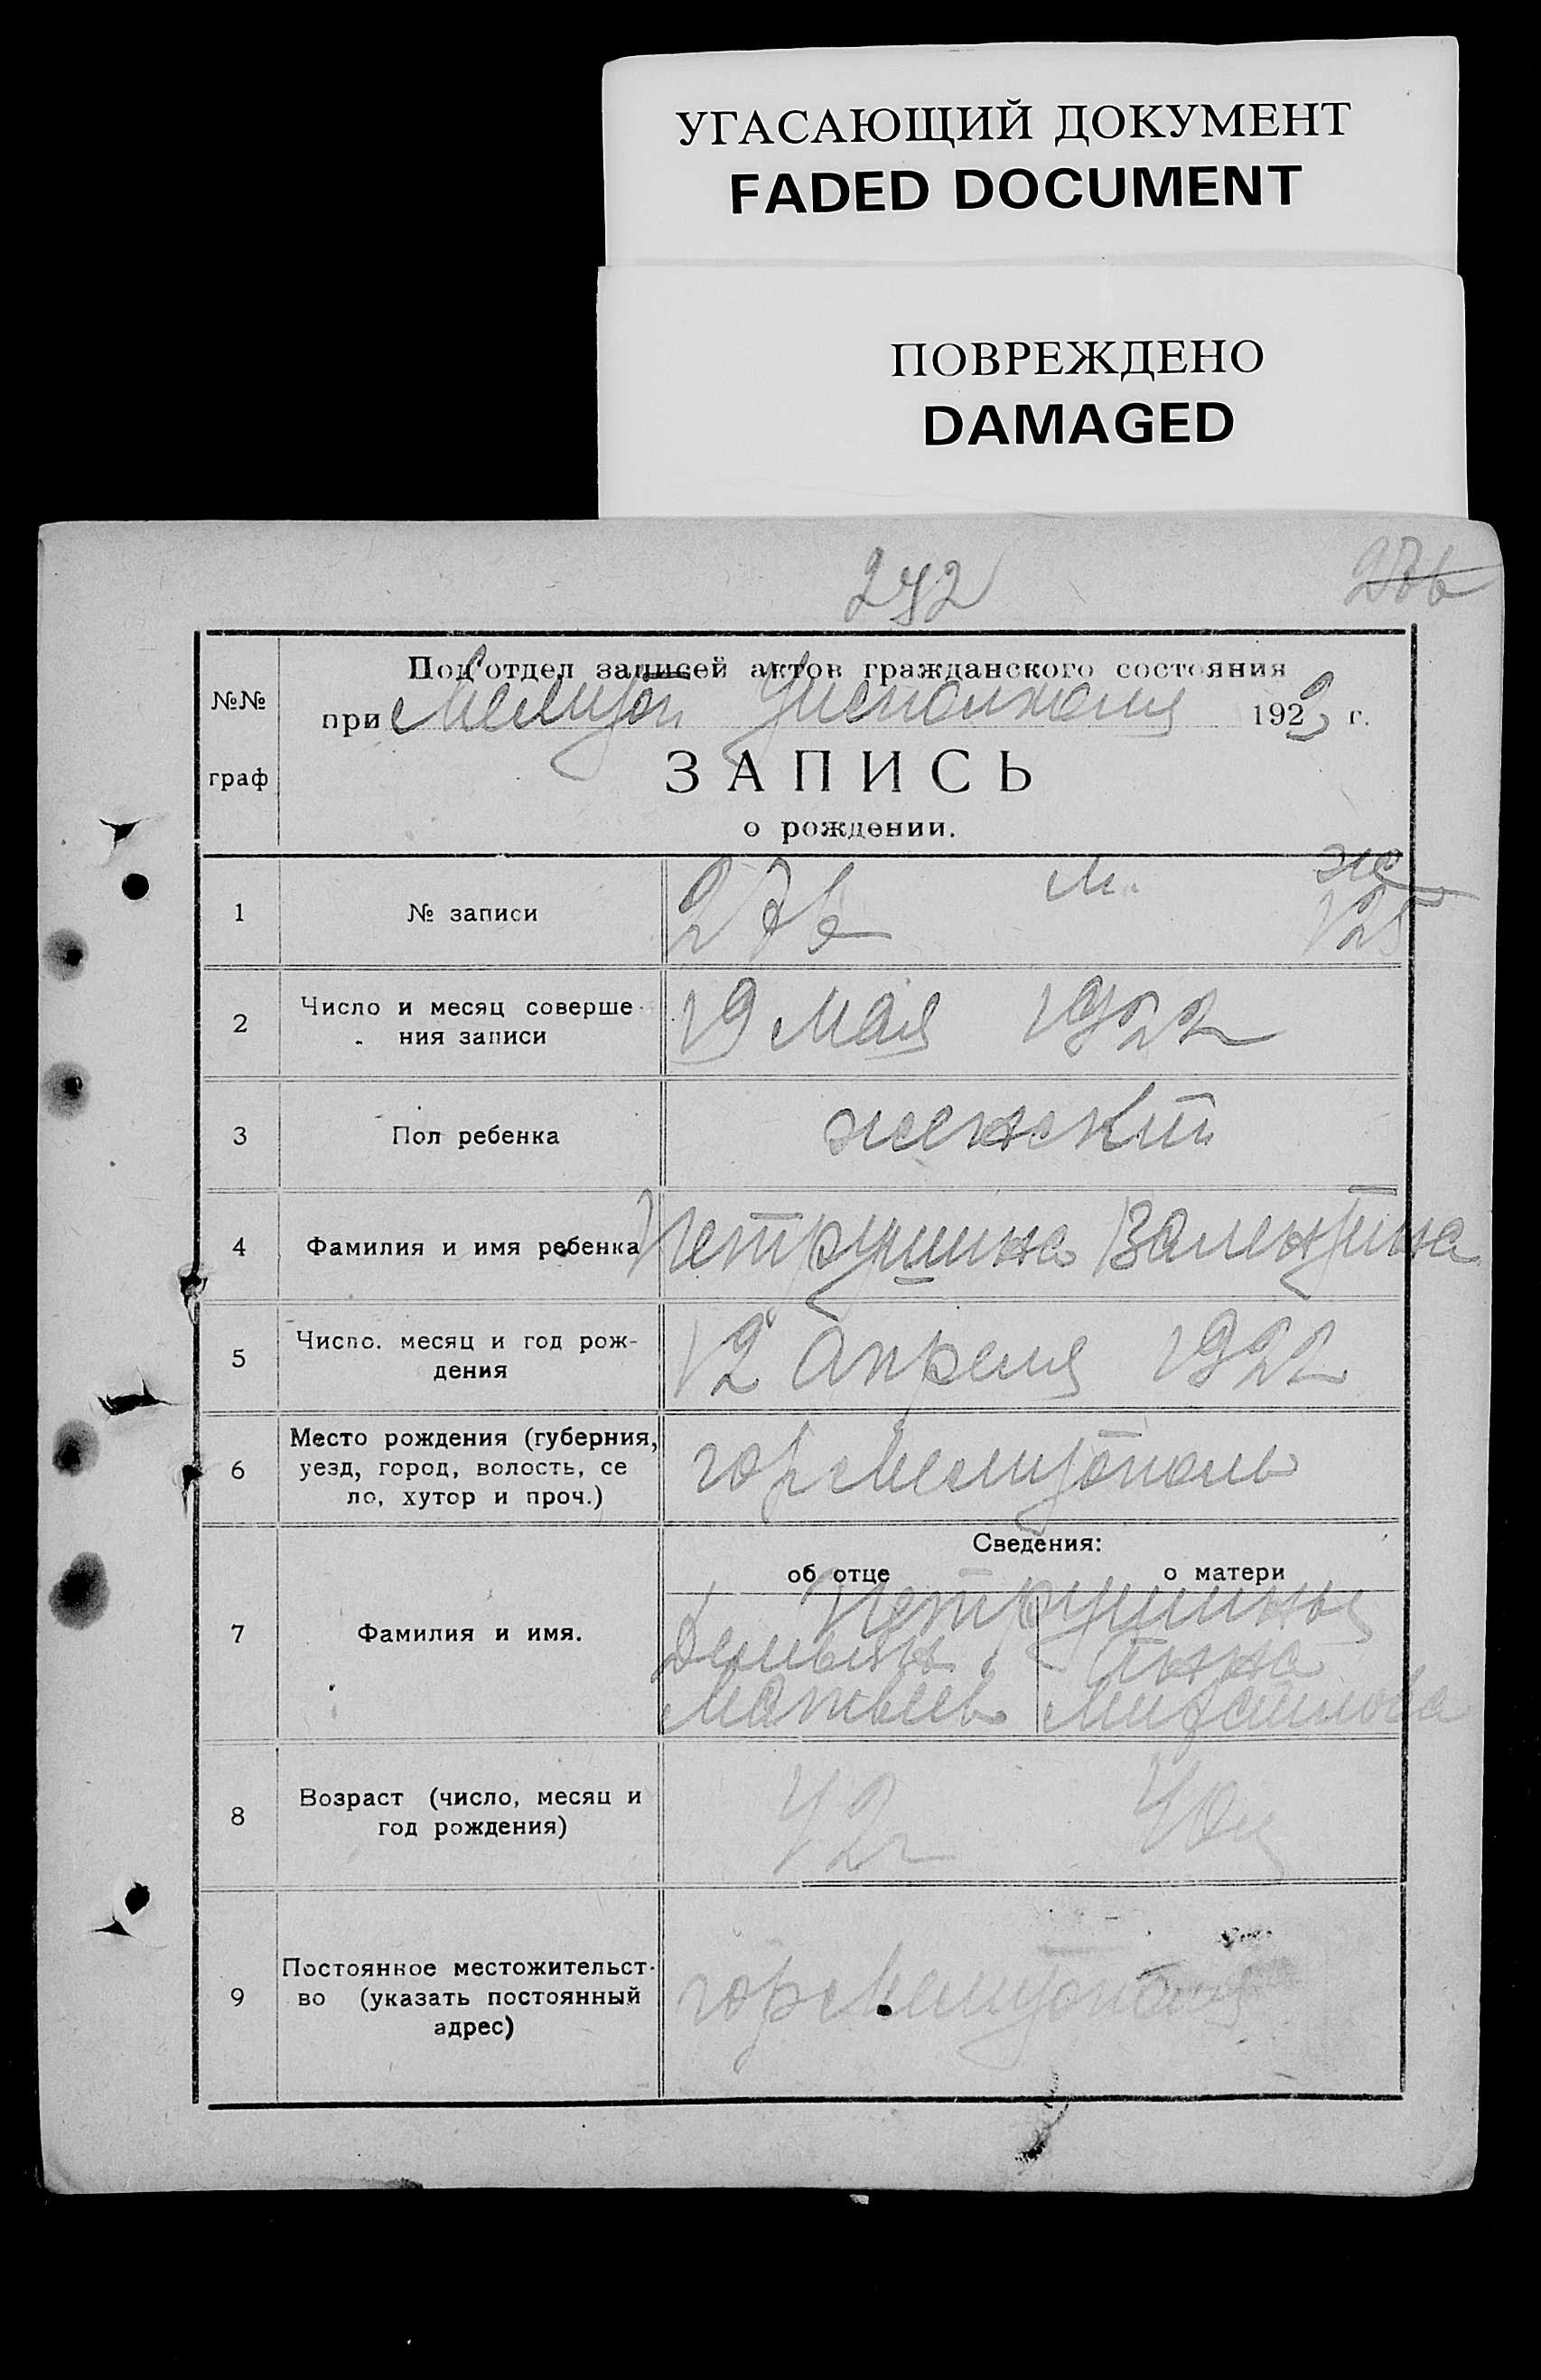 УГАСАЮЩИЙ ДОКУМЕНТ
FADED DOCUMENT
ПОВРЕЖДЕНО
DAMAGED
276
№№
граф
Подотдел записей актов гражданского состояния
при Мелитоп Уисполкома 192 г.
ЗАПИСЬ
о рождении.
1 № записи 276 м. ж
125
2 Число и месяц соверше
ния записи 19 мая 1922
3 Пол ребенка женский
4 Фамилия и имя ребенка Петрушина Валентина
5 Число. месяц и год рож-
дения 12 апреля 1922
6 Место рождения (губерния,
уезд, город, волость, се
ло, хутор и проч.) гор Мелитополь
Сведения:
об отце о матери
7 Фамилия и имя. Петрушины
Демьян Анна
Матвеев Михайлова
8 Возраст (число, месяц и
год рождения) 42 г 40 л
9 Постоянное местожительст-
во (указать постоянный
адрес) гор Мелитополь